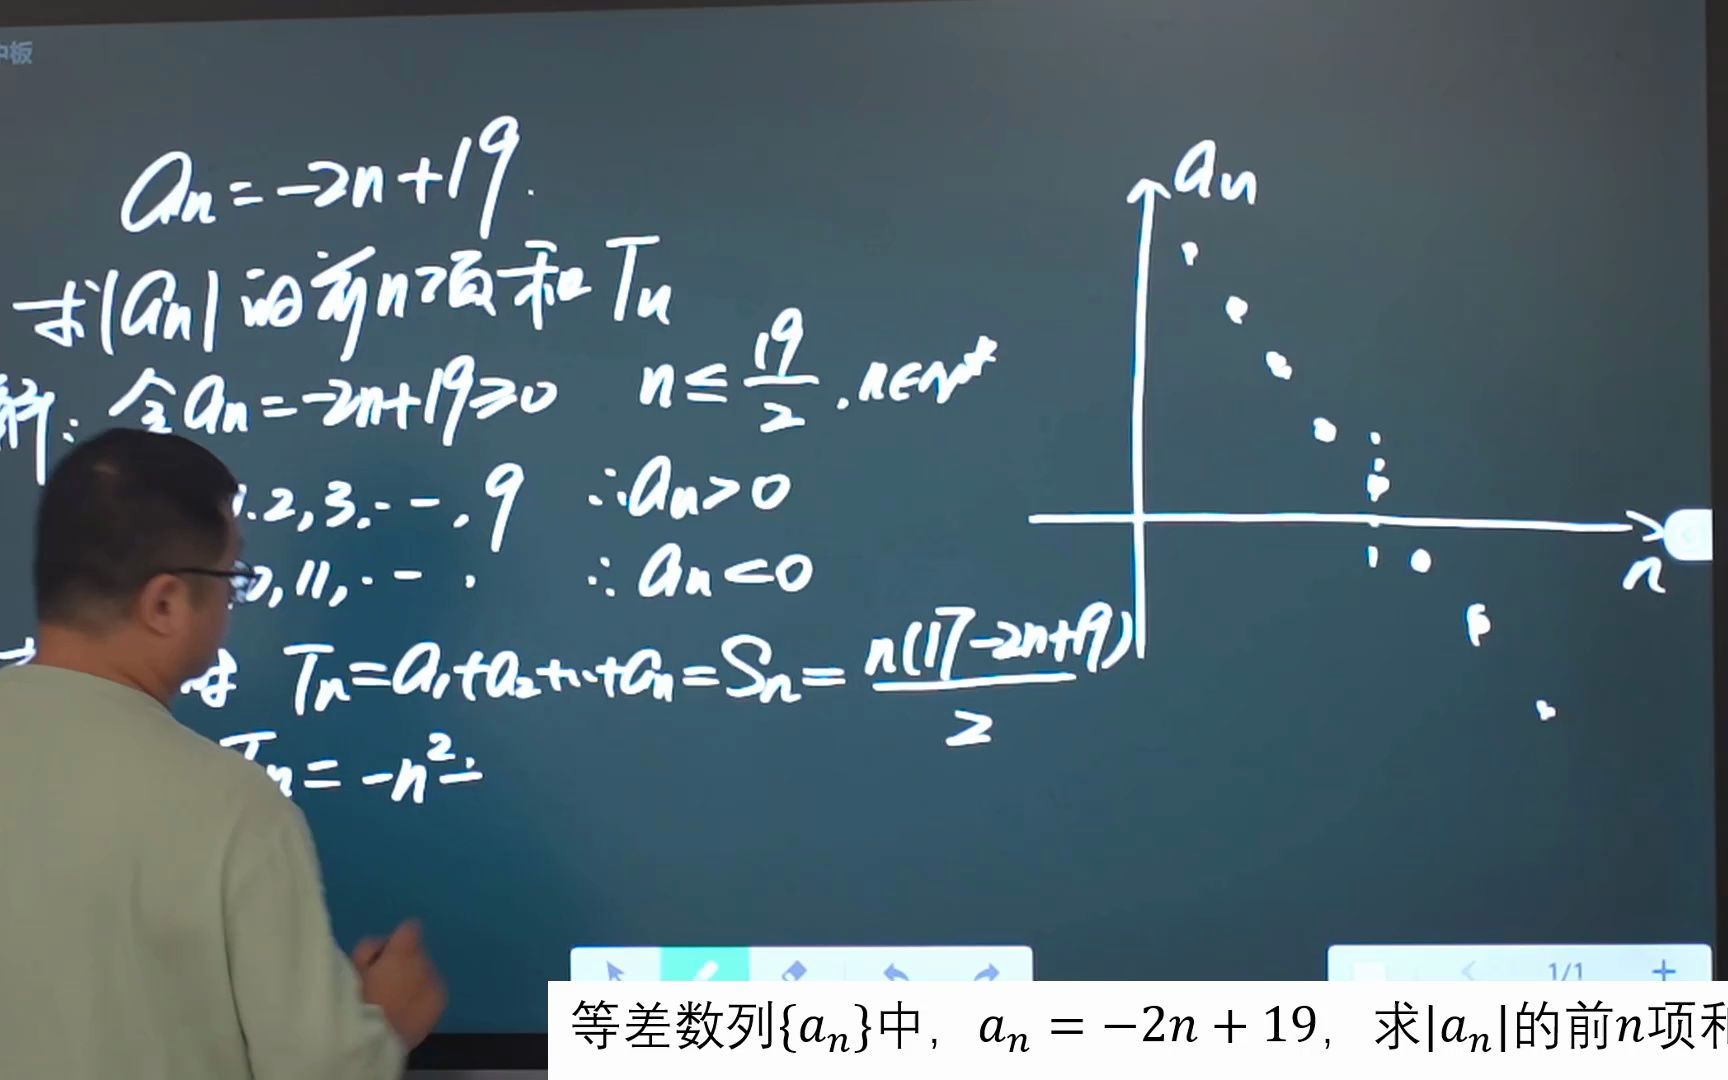 中板
aₙ = -2n + 19.
求|aₙ|的前n项和Tₙ
解: 令aₙ = -2n+19≥0 n ≤ 19/2 . n∈N*
1.2,3,--,9 ∴aₙ>0
0,11,--. ∴aₙ<0
时 Tₙ=a₁+a₂+…+aₙ=Sₙ= n(17-2n+19)/2
Tₙ = -n²
aₙ
n
1/1
等差数列{aₙ}中，aₙ = −2n + 19，求|aₙ|的前n项和